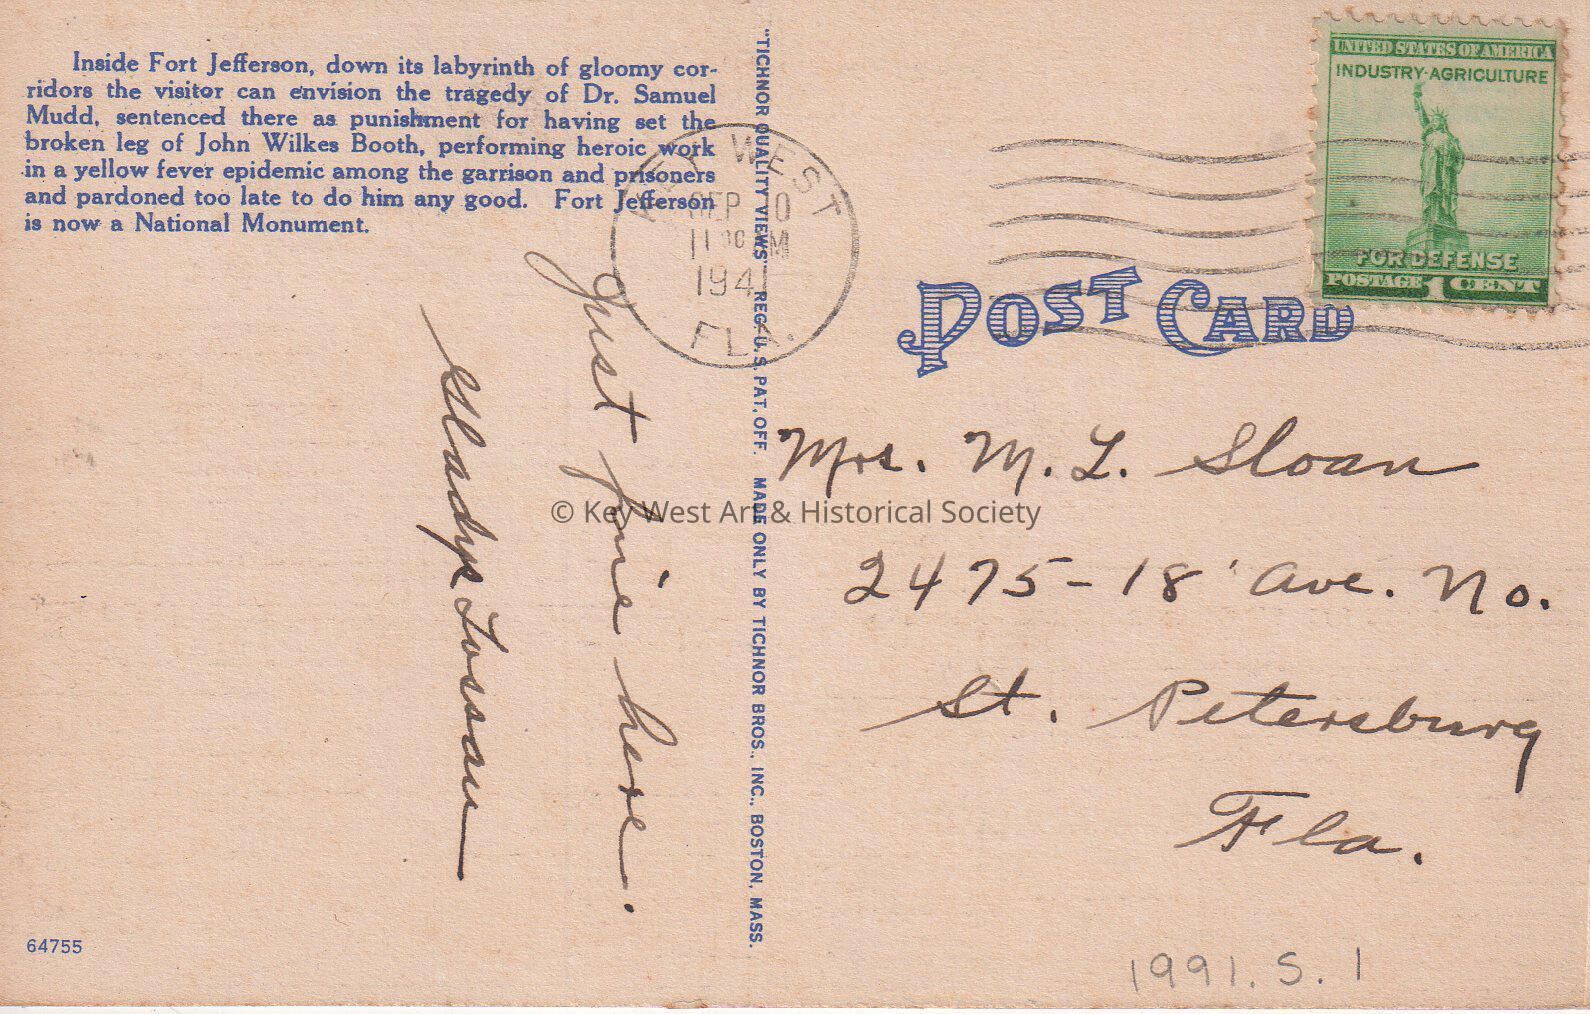 Inside Fort Jefferson, down its labyrinth of gloomy cor-
ridors the visitor can envision the tragedy of Dr. Samuel
Mudd, sentenced there as punishment for having set the
broken leg of John Wilkes Booth, performing heroic work
in a yellow fever epidemic among the garrison and prisoners
and pardoned too late to do him any good. Fort Jefferson
is now a National Monument.
Just fine here.
Gladys
64755
"TICHNOR QUALITY VIEWS" REG. U.S. PAT. OFF. MADE ONLY BY TICHNOR BROS., INC., BOSTON, MASS.
KEY WEST
SEP 10
11 AM
1941
FLA.
UNITED STATES OF AMERICA
INDUSTRY-AGRICULTURE
FOR DEFENSE
POSTAGE 1 CENT
POST CARD
Mrs. M. L. Sloan
2475-18' Ave. No.
St. Petersburg
Fla.
1991.S.1
© Key West Art & Historical Society